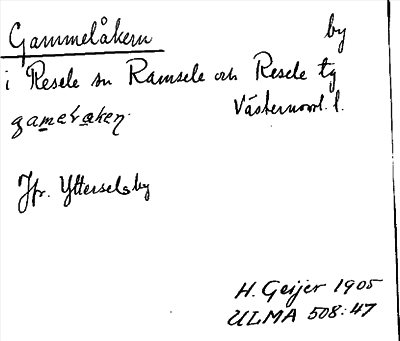 Gammelåkern by
i Resele sn Ramsele och Resele tg
Västernorrl. l.
gamelåken.
Jfr. Ytterselsby
H. Geijer 1905
ULMA 508:47